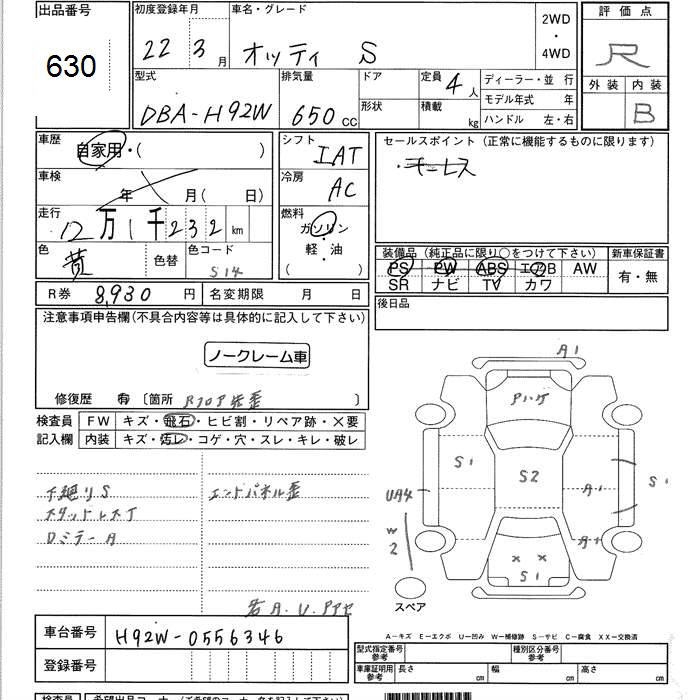 出品番号
630
初度登録年月
22 3月
車名・グレード
オッティ S
2WD
・
4WD
評価点
R
外装 内装
B
型式
DBA-H92W
排気量
650cc
ドア
形状
定員 4人
積載 kg
ディーラー・並 行
モデル年式 年
ハンドル 左・右
車歴
自家用・( )
車検
年 月( 日)
走行
12万1千232km
色
黄
色替
色コード
S14
シフト
IAT
冷房
AC
燃料
ガソリン
・
軽・油
( )
セールスポイント(正常に機能するものに限ります)
・キーレス
装備品(純正品に限り○をつけて下さい)
PS PW ABS エアB AW
SR ナビ TV カワ
新車保証書
有・無
後日品
R券 8,930円
名変期限 月 日
注意事項申告欄(不具合内容等は具体的に記入して下さい)
ノークレーム車
修復歴 有 〔箇所 Rフロア先歪 〕
検査員
記入欄
FW キズ・飛石・ヒビ割・リペア跡・×要
内装 キズ・汚レ・コゲ・穴・スレ・キレ・破レ
下廻りS
スタッドレス
エンドパネル歪
若A.U.
A1
S1
S2
A1
S1
UA4
W2
A1
× ×
S1
スペア
A-キズ E-エクボ U-凹み W-補修跡 S-サビ C-腐食 XX-交換済
車台番号
H92W-0556346
登録番号
型式指定番号
参考
種別区分番号
参考
車庫証明用
参考
長さ cm
幅 cm
高さ cm